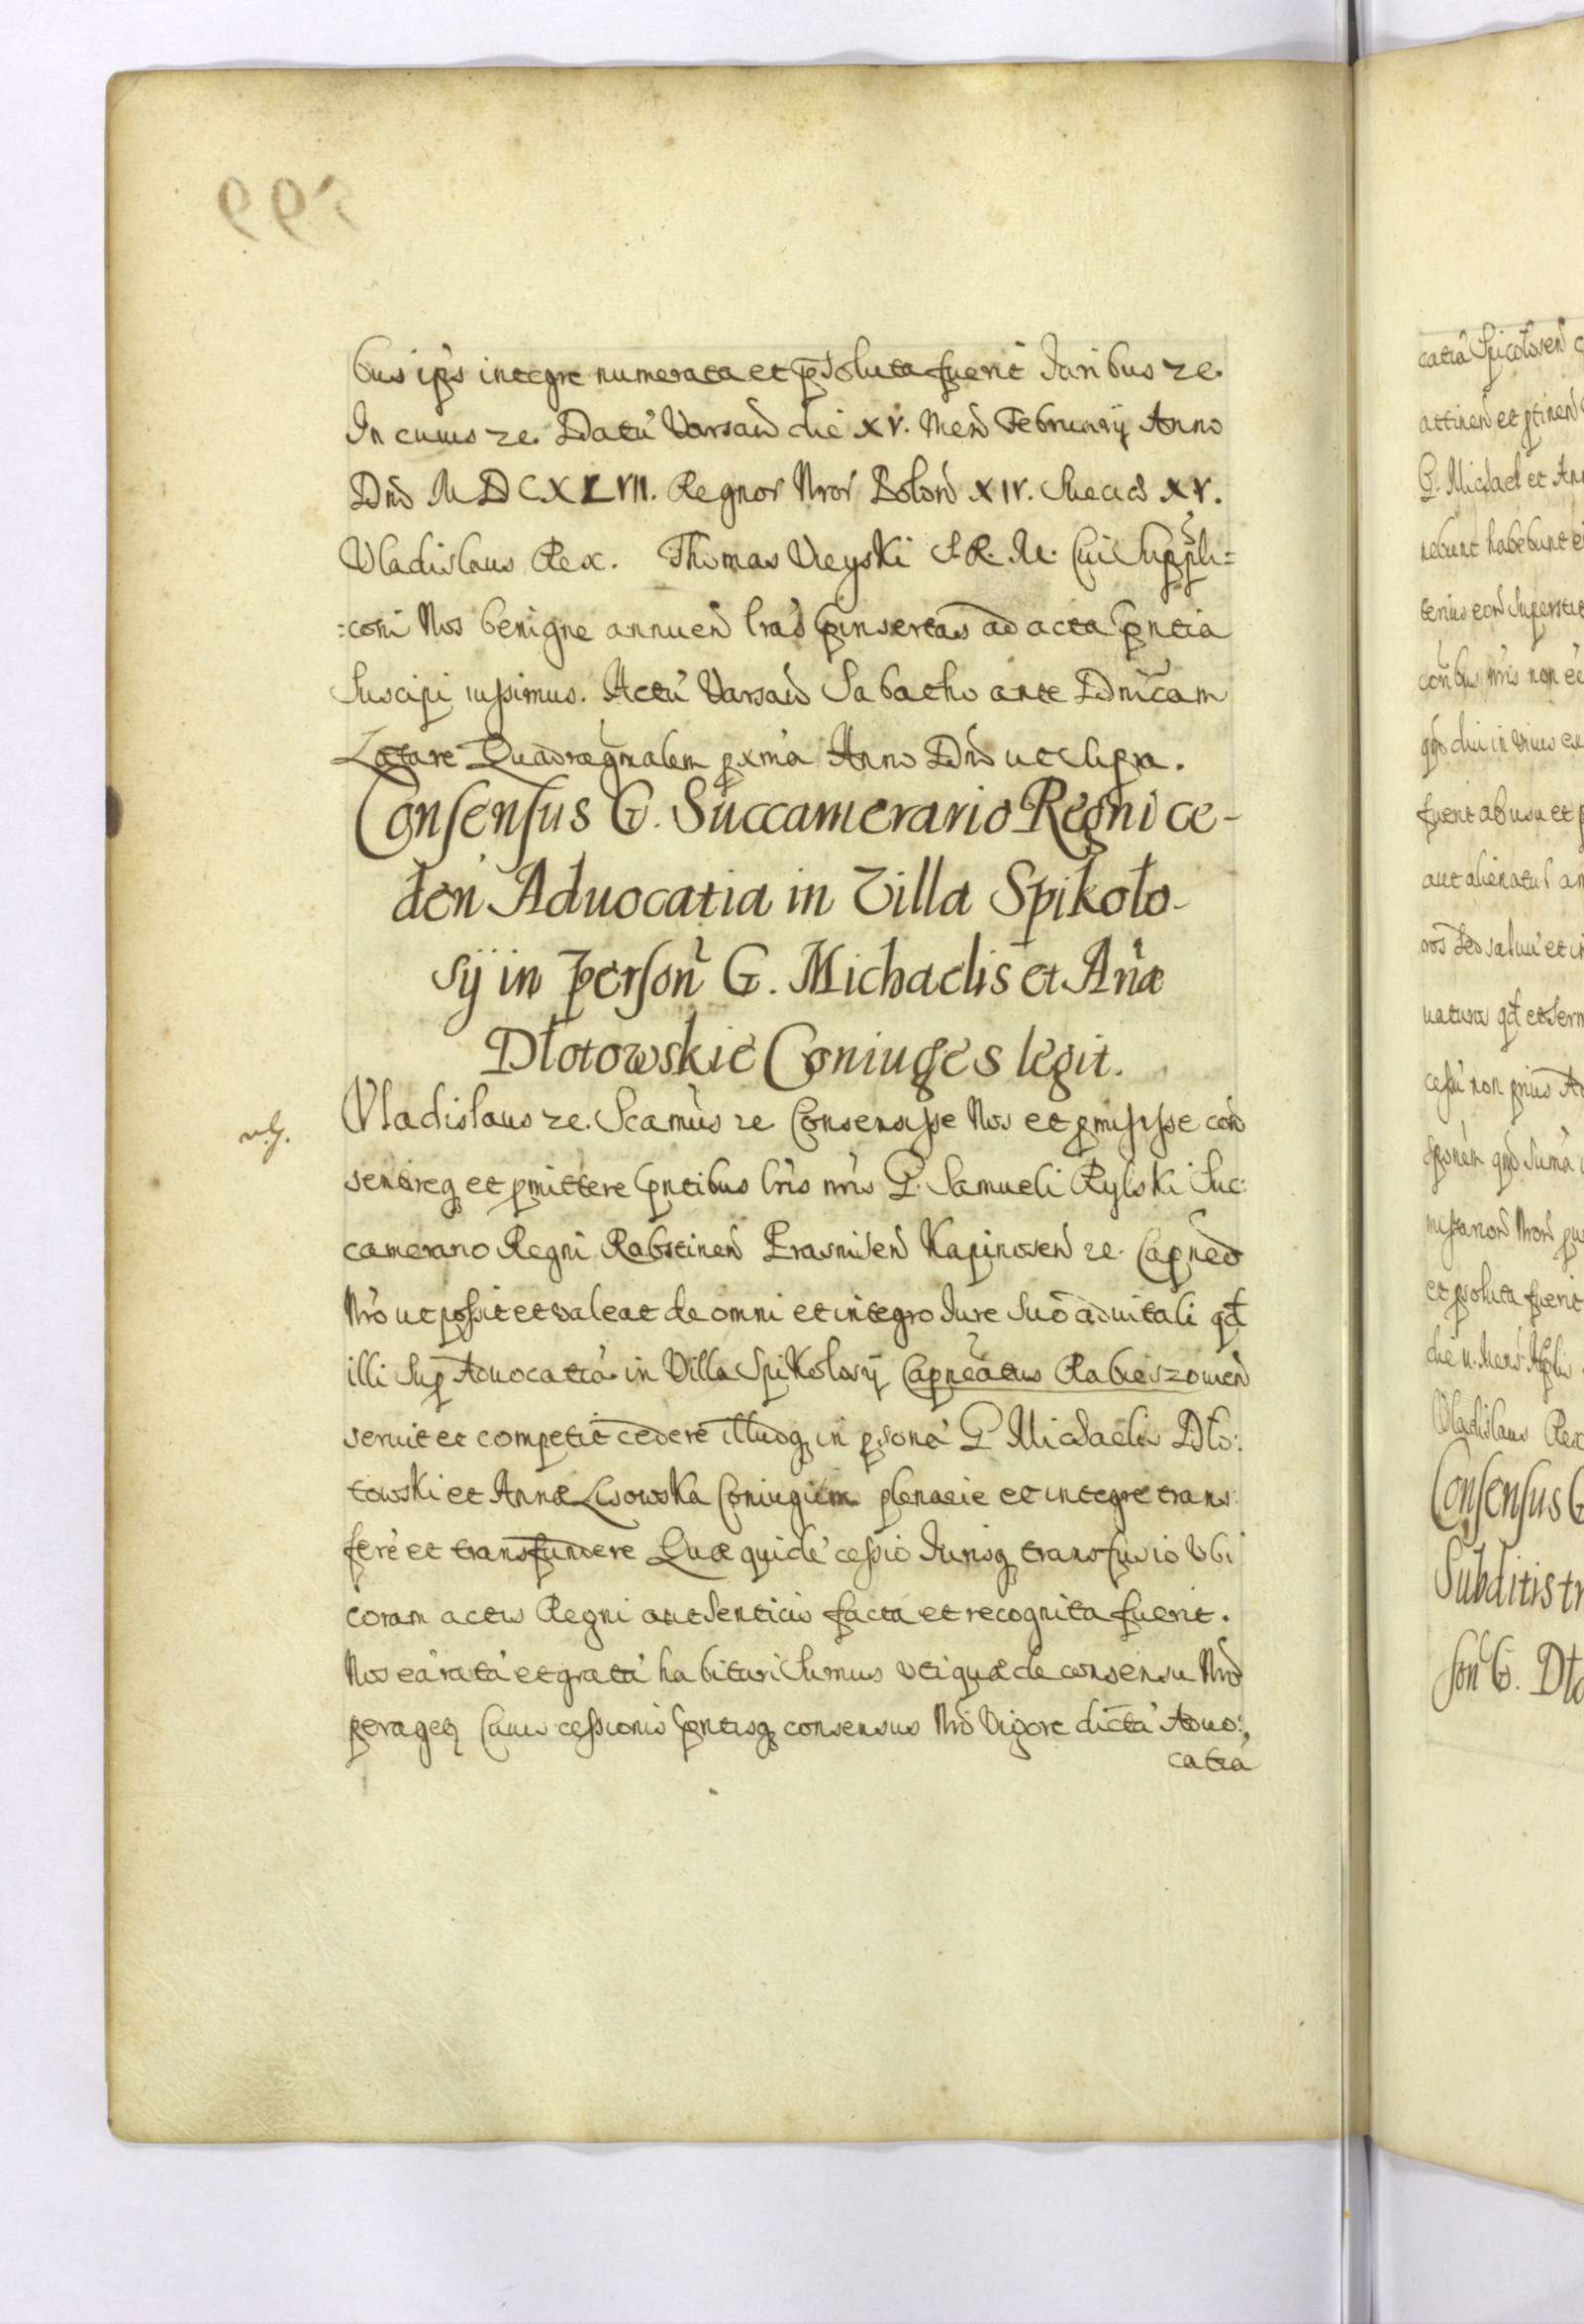 599
bus ipīs integre numerata et psoluta fuerit Juribus ze.
In cuius ze. Datū Varsav die XV. Men Februarij Anno
Dnī MDCXLVII. Regnor Nror Polon XIV. Sueciæ XV.
Vladislaus Rex. Thomas Uieyski S.R.M. Cui Suppli=
=coni Nos benigne annuen lras pinsertas ad acta pntia
Suscipi iussimus. Actū Varsav Sabatho ante Dnicam
Lætare Quadragnalem pxma Anno Dnī ut supra.
Consensus G. Succamerario Regni ce-
den Aduocatia in Villa Spikoło-
sÿ in person G. Michaelis et Añæ
Dłotowskie Coniuges legit.
Vladislaus ze. Scamus ze Consensisse Nos et pmisisse con
sentireq et pmittere pntibus lris nris G. Samueli Rylski Suc:
camerario Regni Rabstinen Erasmisen Kapinosen ze. Capneo
Nro ut possit et valeat de omni et integro Jure Suo aduitali qd
illi Sup Aduocatia in Villa Spikolosÿ Capneatus Rabieszouien
seruit et competit cedere illudq in psona G Michaelis Dło:
towski et Annæ Lisowska Coniugium plenarie et integre trans
ferre et transfundere Quæ quidē cessio Jurisq transfusio Ubi
coram actis Regni authenticis facta et recognita fuerit.
Nos eā ratā et gratā habituri Sumus uti quæ de consensu Nro
perageꝫ Cuius cessionis pntisq consensus Nri Vigore dictā Aduo:
catiā
catiā Spicolosen
attinen et ptinen
G. Michael et Ann
nebunt habebunt e
tenius eor Superstit
conbus nris non
qmdiu in Viuis ex
fuerit ab usu et p
aut alienatus
uatura qd et Seren
cessū non prius Ad
et psoluta fuerit
Vladislaus Rex
Consensus G
Subditis tr
son G. Dło